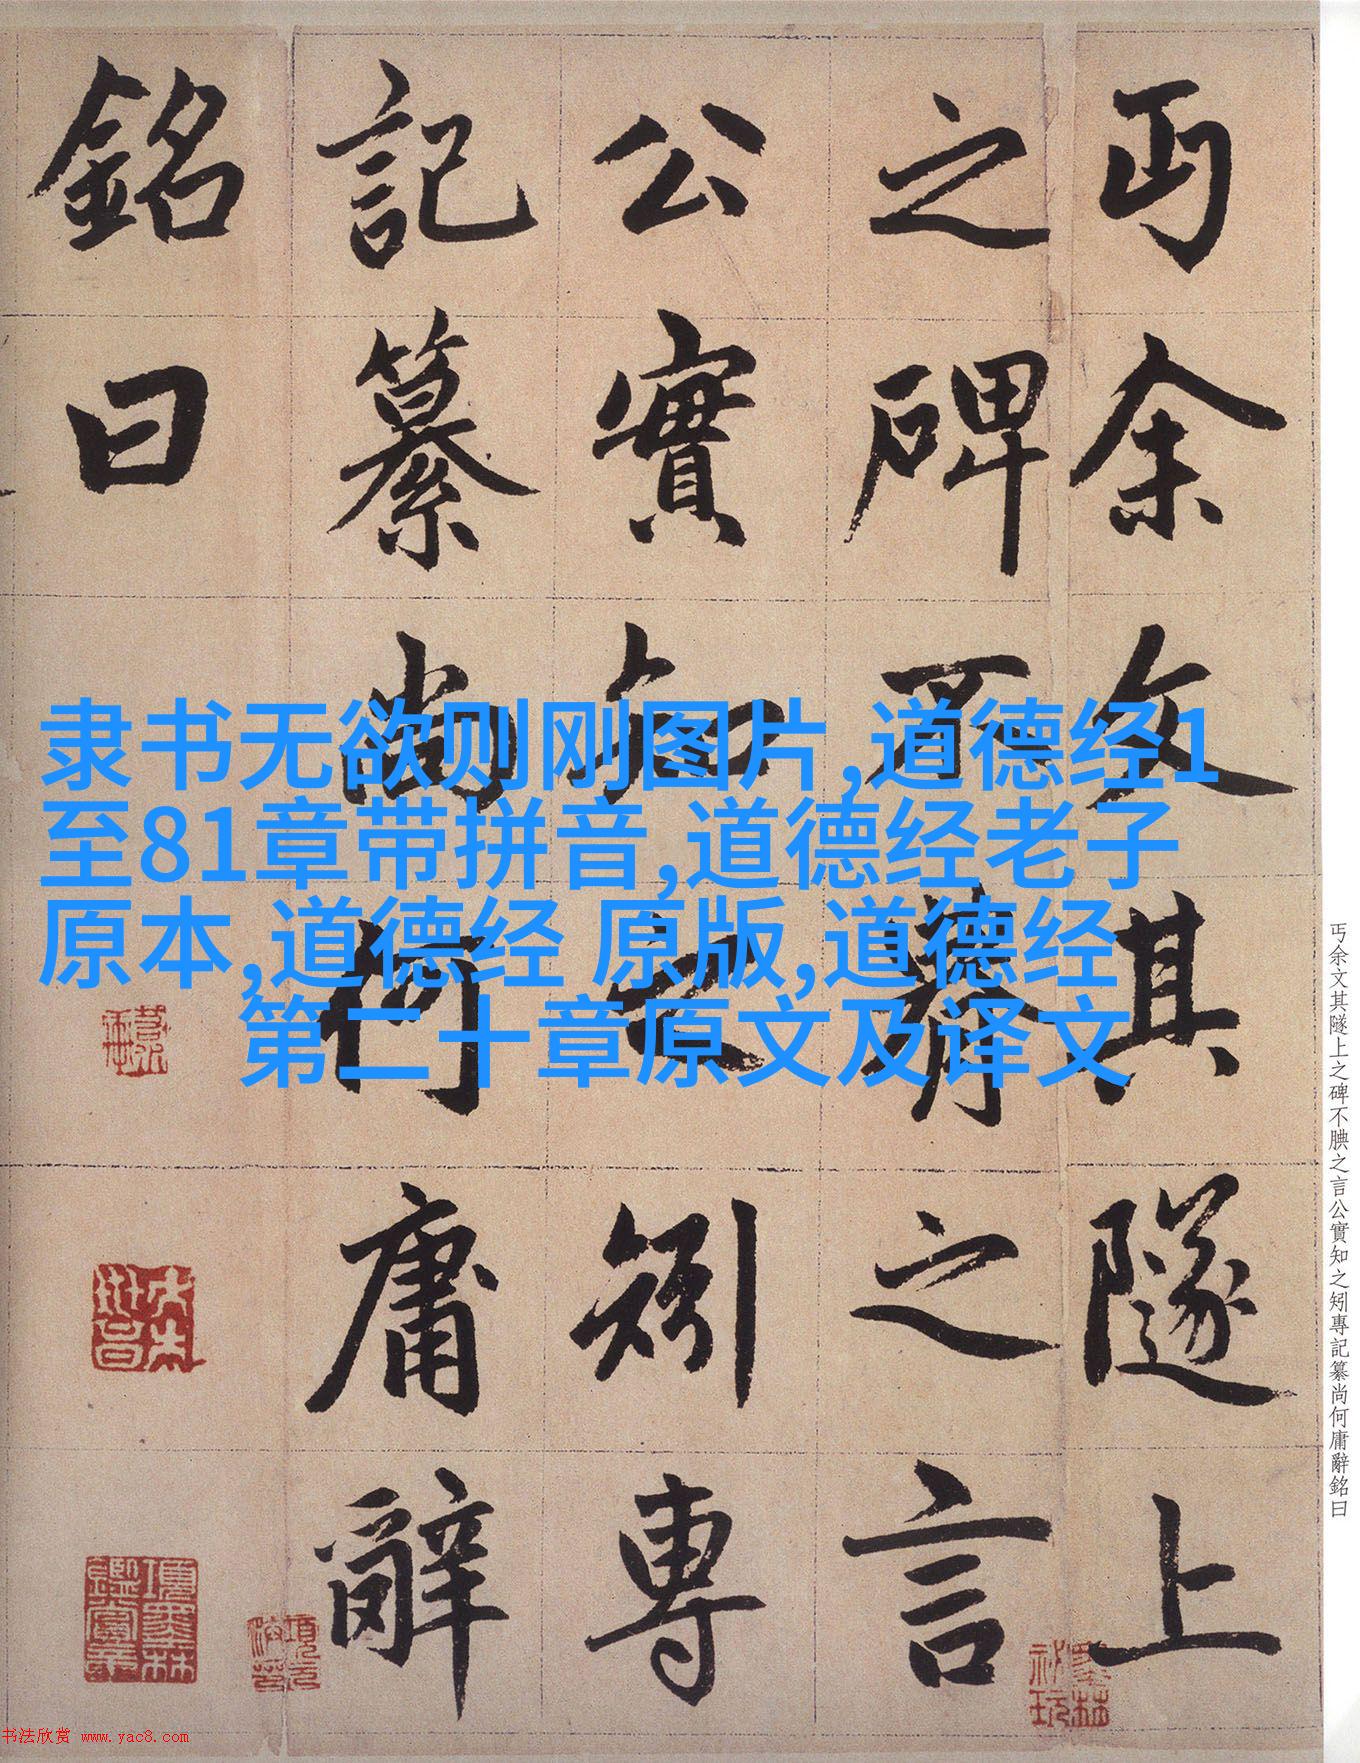 丏余文其隧上
之碑不腆之言
公實知之矧專
記纂尚何庸辭
銘曰
隶书无欲则刚图片,道德经1
至81章带拼音,道德经老子
原本,道德经 原版,道德经
第二十章原文及译文
丏余文其隧上之碑不腆之言公實知之矧專記纂尚何庸辭銘曰
書法欣赏 www.yac8.com